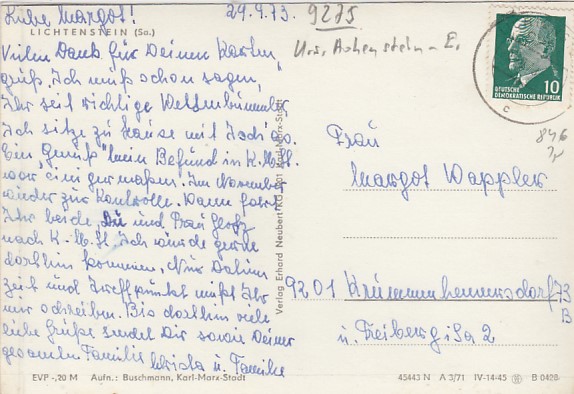 Liebe Margot! 29.9.73.
9275
LICHTENSTEIN (Sa.)
Vielen Dank für Deinen Karten
gruß. Ich muß schon sagen,
Ihr seit richtige Weltenbummler
Ich sitze zu Hause mit
Ein "Genuß" mein Befund in K.M.St.
war einigermaßen. Im November
wieder zur Kontrolle. Wann fahr
Ihr beide, Du und Frau
nach K.M.St. Ich würde gerne
dorthin kommen, Nur Datum
Zeit und Treffpunkt müßt Ihr
mir schreiben. Bis dorthin viele
liebe Grüße sendet Dir sowie Deiner
gesamten Familie u. Familie
EVP -,20 M Aufn.: Buschmann, Karl-Marx-Stadt
Verlag Erhard Neubert KG, 901 Karl-Marx-Stadt
10
DEUTSCHE
DEMOKRATISCHE REPUBLIK
C
Frau
Margot Wappler
9201 Krummenhennersdorf 73
B
ü. Freiberg i. Sa 2
45443 N A 3/71 IV-14-45 B 0428